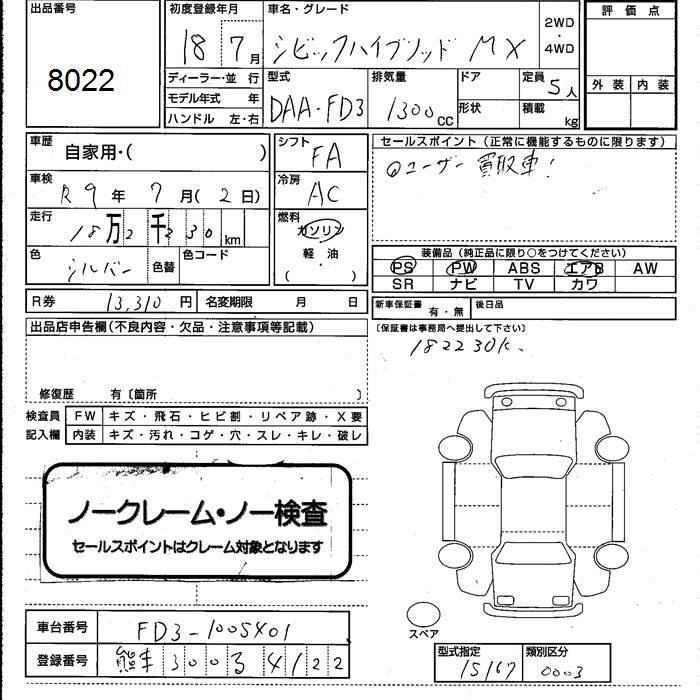 出品番号
8022
初度登録年月
18 7月
車名・グレード
シビックハイブリッド MX
2WD
・
4WD
評価点
外装 内装
ディーラー・並 行
モデル年式 年
ハンドル 左・右
型式
DAA-FD3
排気量
1300cc
ドア
形状
定員 5人
積載 kg
車歴
自家用・( )
シフト
FA
セールスポイント (正常に機能するものに限ります)
ユーザー買取車!
車検
R9年 7月(2日)
冷房
AC
走行
18万2千230km
燃料
ガソリン
軽・油
( )
色
シルバー
色替
色コード
装備品(純正品に限り○をつけてください)
PS PW ABS エアB AW
SR ナビ TV カワ
R券 13,310円 名変期限 月 日
新車保証書 有・無 後日品
(保証書は事務局へ提出して下さい)
182230k.
出品店申告欄(不良内容・欠品・注意事項等記載)
修復歴 有〔箇所 〕
検査員 FW キズ・飛石・ヒビ割・リペア跡・X要
記入欄 内装 キズ・汚れ・コゲ・穴・スレ・キレ・破レ
ノークレーム・ノー検査
セールスポイントはクレーム対象となります
車台番号 FD3-1005401
登録番号 熊本 300 る 4122
スペア
型式指定
15167
類別区分
0003